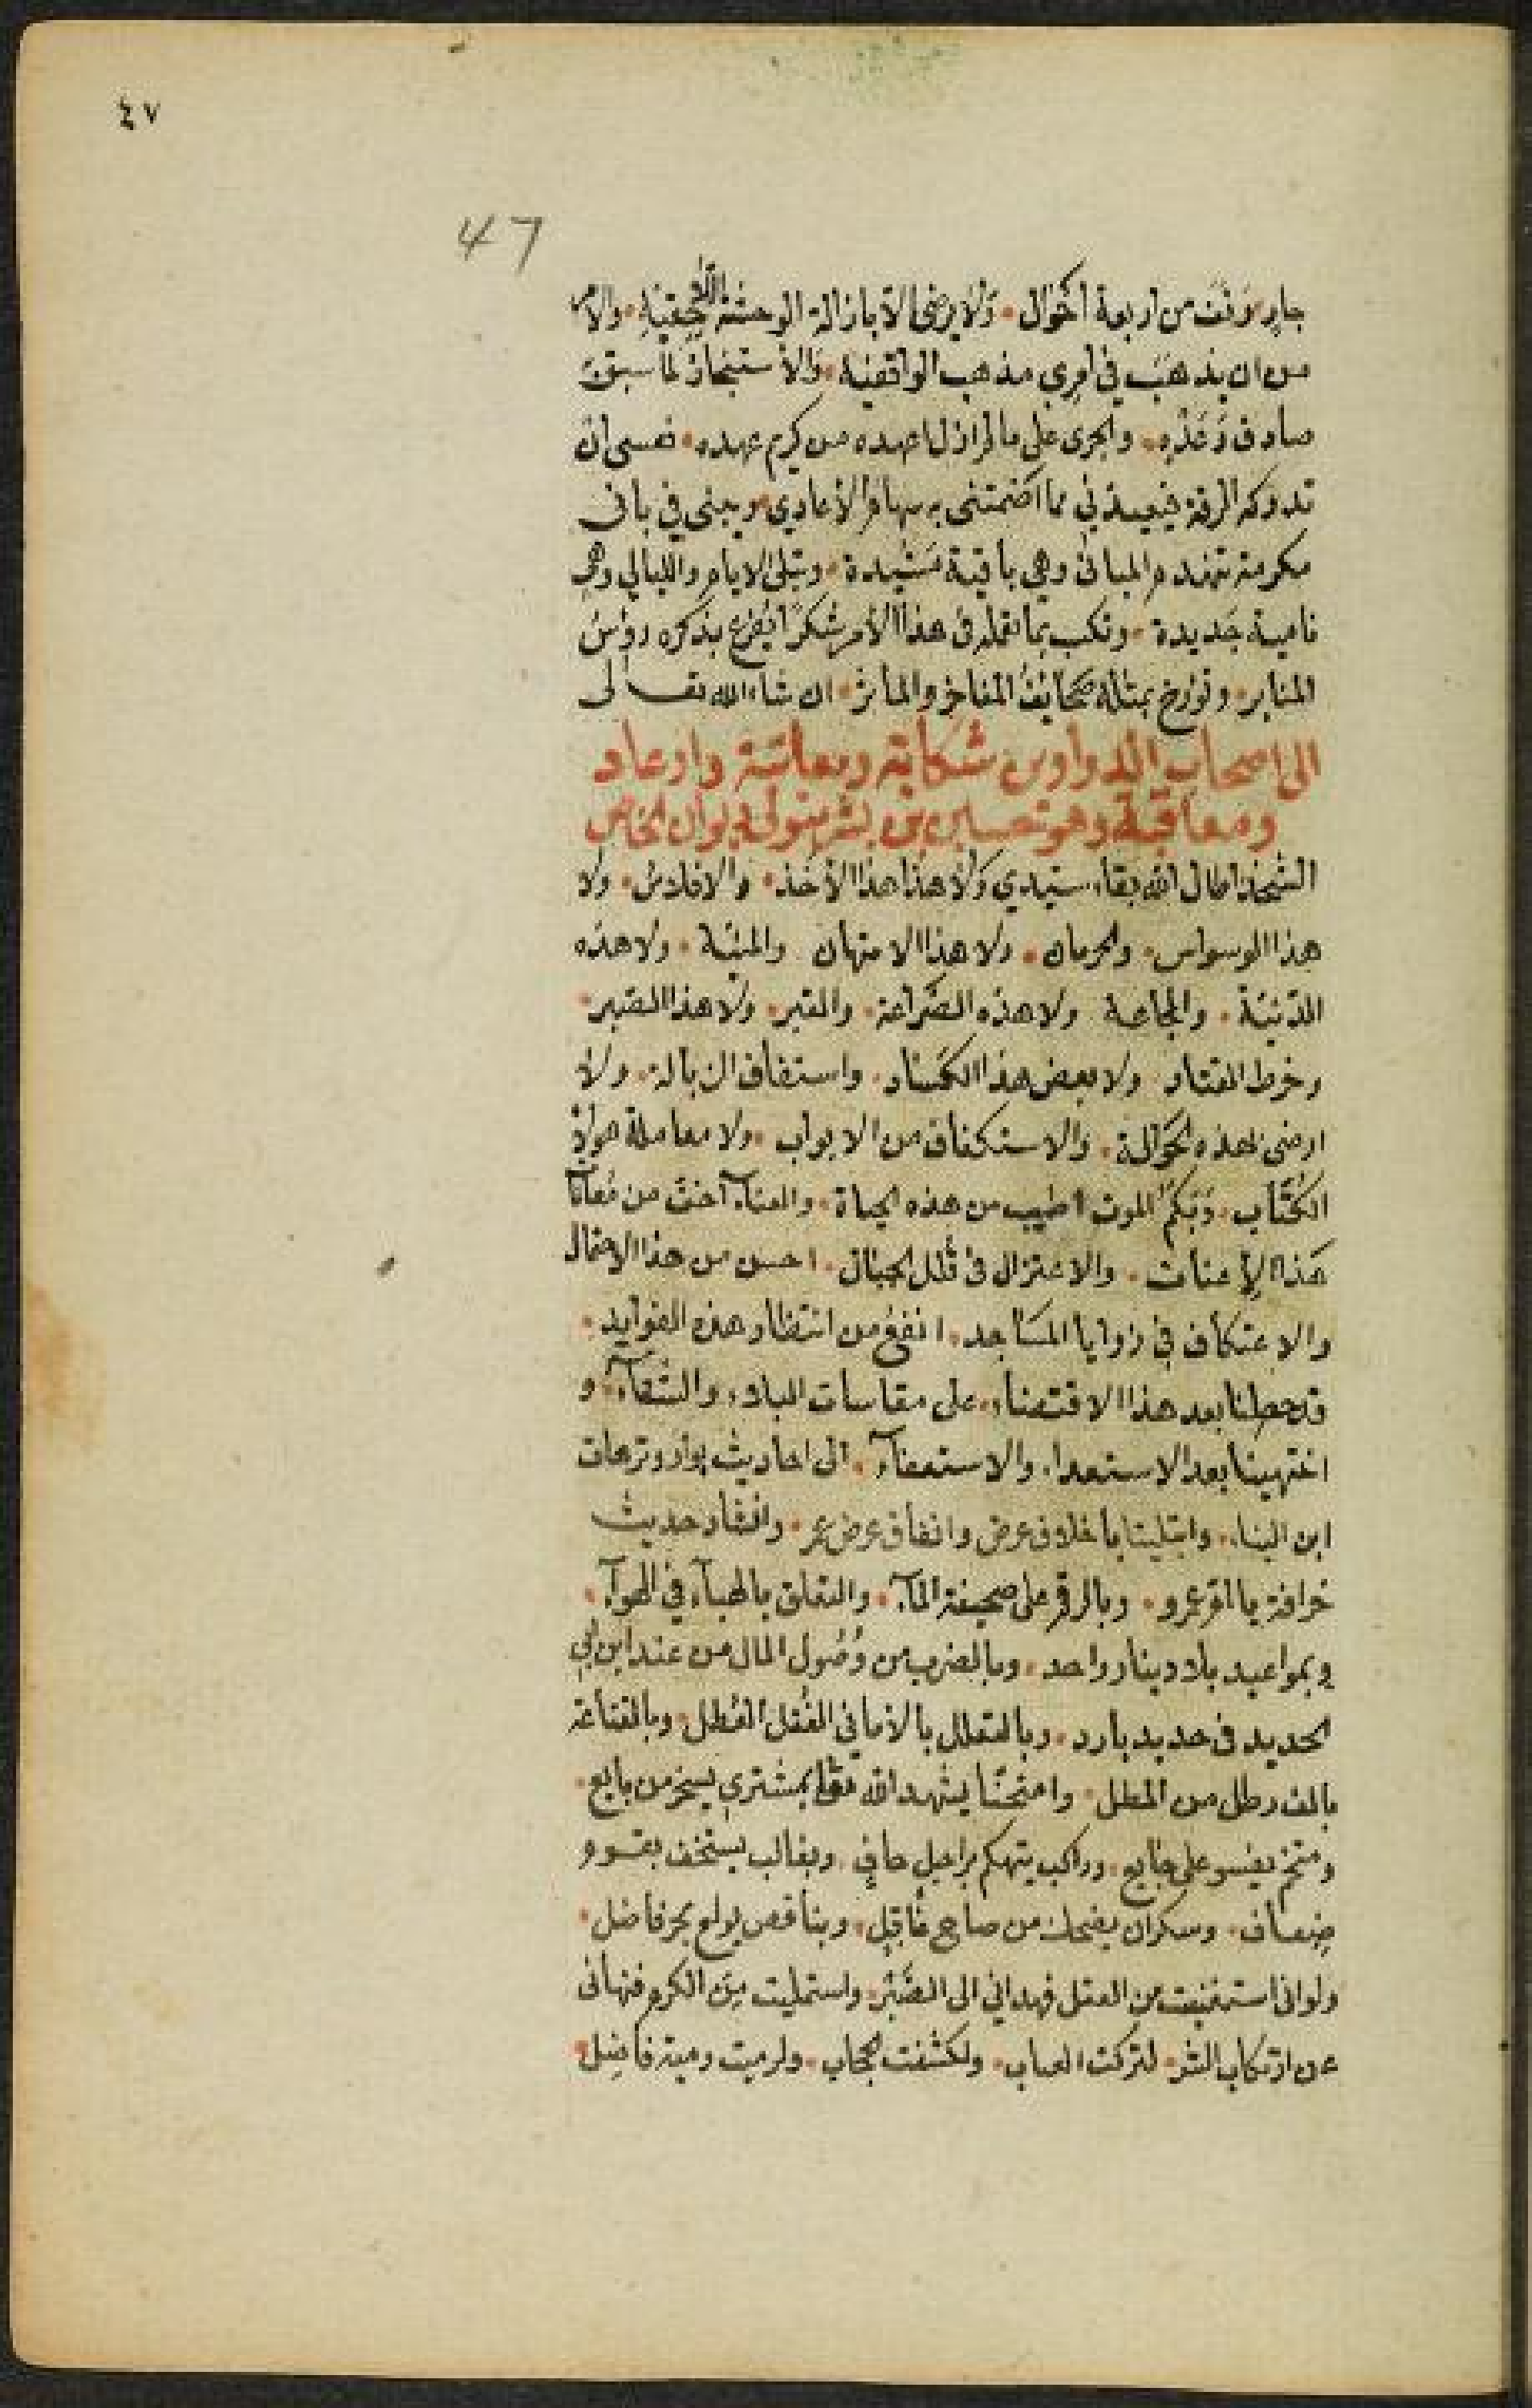 ٤٧
47
من اربعة احوال • ولا يرضى الا بازالة الوحشة • والا
من ان يذهب في امري مذهب الواقفية • والاستنجاز لما سبق
صادق وعده • والجري على ما لم ازل اعهده من كريم عهده • فعسى ان
تدركه الرقة به سهام الاعادي • ويبنى في باقى
مكرمة تنهدم المبانى وهي باقية مشيدة • وتبلى الايام والليالي وهي
نامية جديدة • ونكسب بما نقمله فى هذا الامر شكرًا يُفرع بذكره روس
المنابر • وتورخ بمثله صحائف المفاخر والمآثر • ان شاء الله تعالى
الى اصحاب الدواوين شكاية ومعاتبة وارعاد
ومعاقبة وهو حسين بن بشر بتولى ديوان الخاص
اطال الله بقاء سيدي ولا هذا هذا الاخذ • والافلاس • ولا
هذا الوسواس • والحرمان • ولا هذا الامتهان والمنية • ولا هذه
الدنية • والمجاعة ولا هذه الضراعة • والقبر • ولا هذا الصبر •
وخرط القتاد ولا بعض هذا الكساد • واستفاف الزبالة • ولا
ارضى بهذه الحوالة • والاستكفاف من الابواب • ولا معاملة هولاء
الكتاب • الموت اطيب من هذه الحياة • والفناء اخف من معاناة
هذا الاعنات • والاعتزال فى قلل الجبال • احسن من هذا الاحتمال
والاعتكاف في زوايا المساجد • انفع من انتظار هذه الفوايد •
قد حصلنا بعد هذا الاقتضاء • على مقاسات البلاء • والشقاء • و
انتهينا بعد الاستعداء والاستعفاء • الى احاديث وترهات
ابن البناء • وابتلينا باخلاق عرض وانفاق عرض عمر • وانشاد حديث
خرافة يا ام عمرو • وبالرقم على صحيفة الماء • والتعلق بالهباء في الهواء •
وبمواعيد بلا دينار واحد • وبالضرب من وصول المال من عند ابن ابي
الحديد فى حديد بارد • وبالتعلل بالامانى الغُفل العُطل • وبالقناعة
بالف رطل من المطل • وامتحنا يشهد الله تعالى بمشتري يسخر من بايع •
ومتخم يفسو على جايع • وراكب يتهكم براجل حافٍ • وبغالب يستخف بقوم
ضعاف • وسكران يضحك من صاحٍ عاقل • وبناقص يولع بحر فاضل •
ولوانى استفتيت من العقل فهداني الى الصبر • واستمليت من الكرم فنهانى
عن ارتكاب الشر • لتركت العباب • ولكشفت الحجاب • ولرميت رمية فاضل •